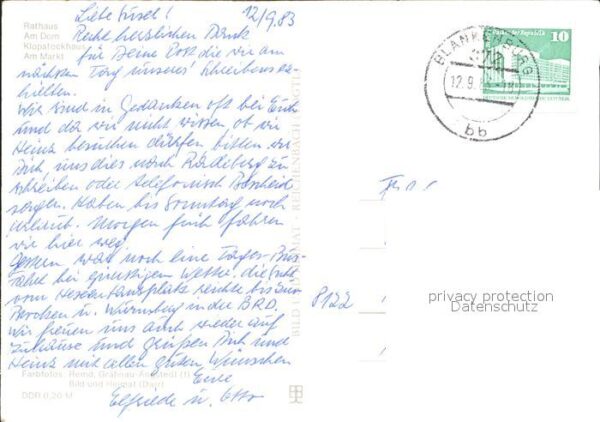 Liebe Ursel! 12/9.83
Recht herzlichen Dank
für Deine Post die wir am
nächsten Tag unseres Schreibens er-
hielten.
Wir sind in Gedanken oft bei Euch
und da wir nicht wissen ob wir
Heinz besuchen dürfen bitten wir
Dich, uns dies nach Radeburg zu
schreiben oder telefonisch Bescheid
sagen. Haben bis Sonntag noch
Urlaub. Morgen früh fahren
wir hier weg.
Gestern war noch eine Tages Bus-
fahrt bei günstigem Wetter, die
vom rechts bis zum
Brocken u. Wurmberg in der BRD.
Wir freuen uns auch wieder auf
zuhause und grüßen Dich und
Heinz mit allen guten Wünschen
Eure
Elfriede u. Otto
Rathaus
Am Dom
Klopstockhaus
Am Markt
Farbfotos:
Bild und Heimat
DDR 0,20 M
BILD UND HEIMAT REICHENBACH
BLANKENBURG
12.9.
bb
Palast der Republik 10
DEUTSCHE DEMOKRATISCHE REPUBLIK
8122
privacy protection
Datenschutz